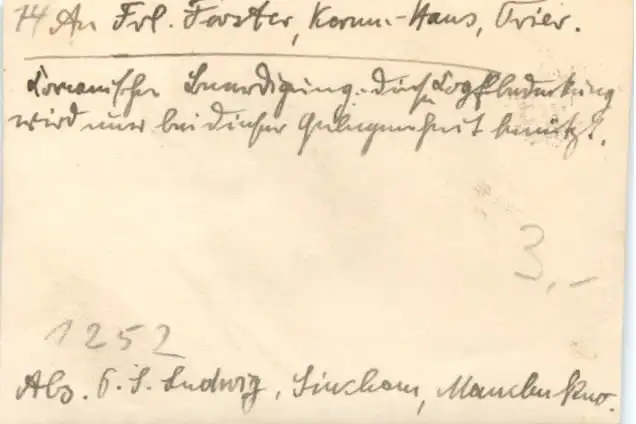 74 An Frl. Forster, Korum-Haus, Trier.
Koreanischer Beerdigung. Diese Kopfbedeckung
wird nur bei dieser Gelegenheit benützt.
3,-
1252
Abs. P. S. Ludwig, Sinkham, Manchukuo.